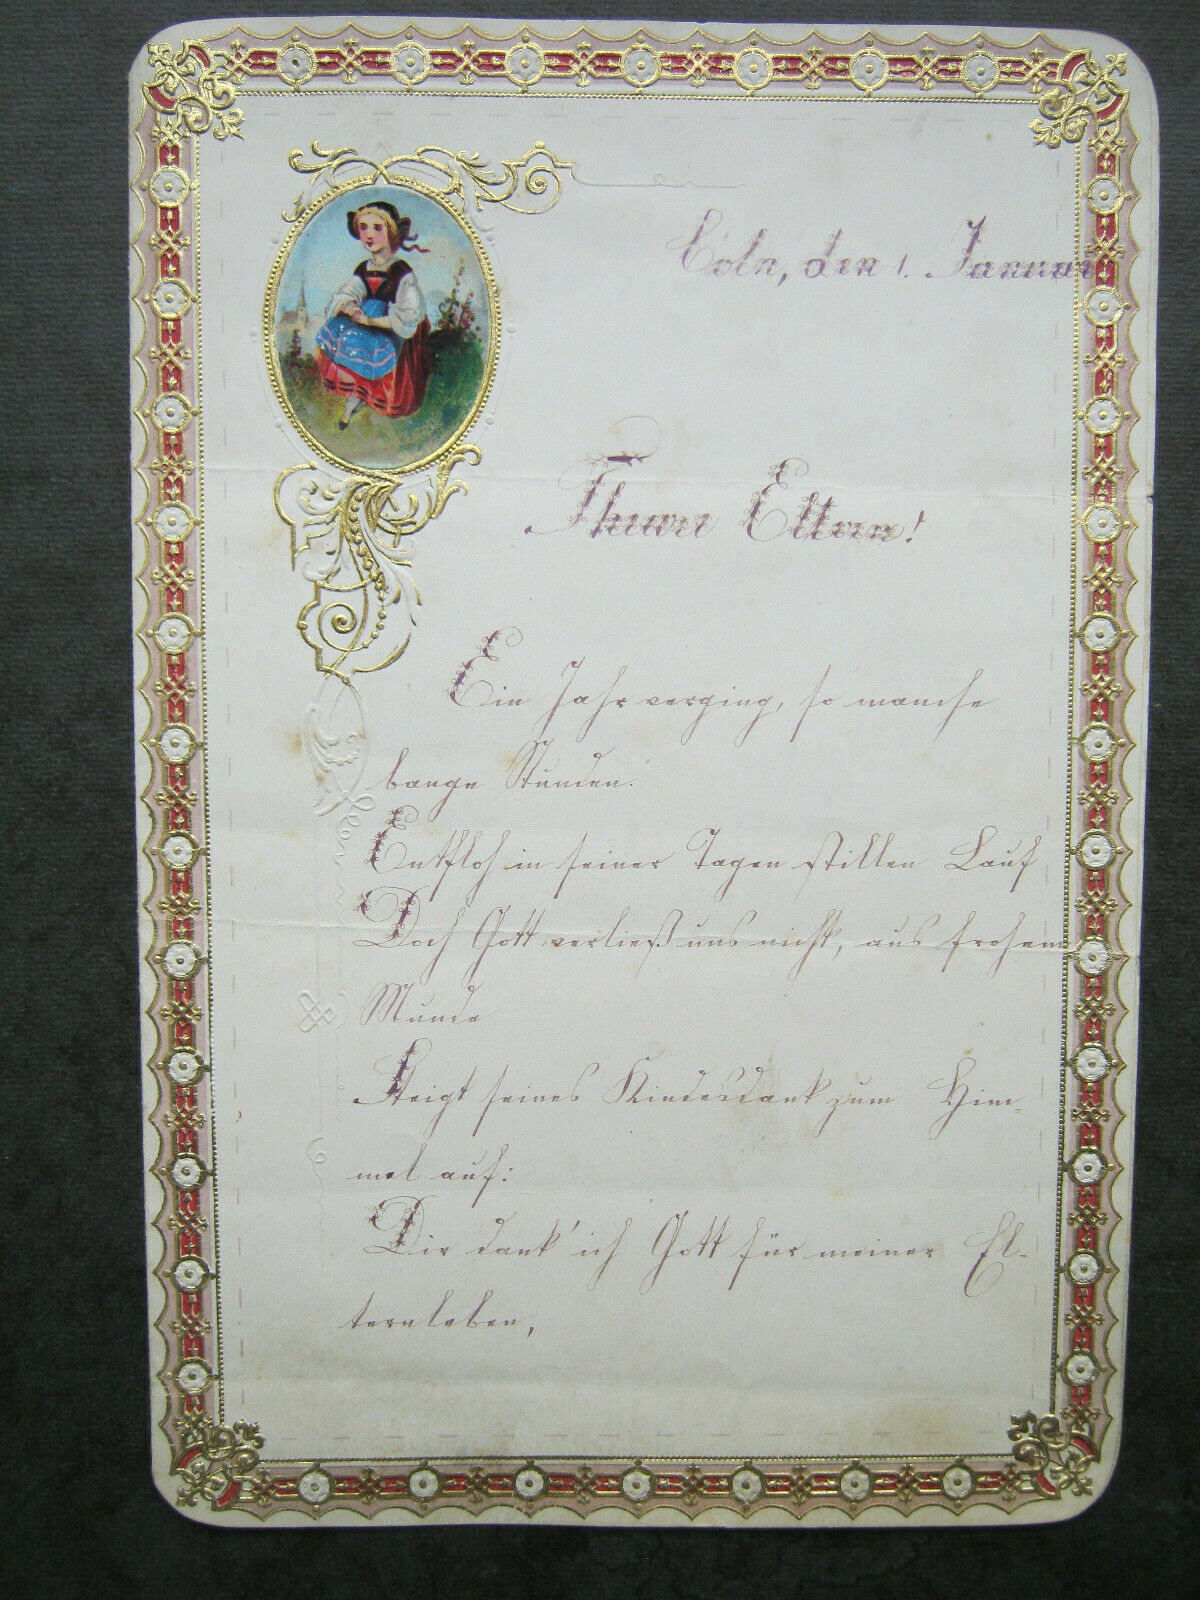 Cöln, den 1. Januar
Theure Eltern!
Ein Jahr verging, so manche
bange Stunden.
Entfloh in seiner Tagen stillen Lauf
Doch Gott verließ uns nicht, aus frohem
Munde
Steigt seines Kindesdank zum Him-
mel auf:
Dir dank' ich Gott für meiner El-
ternleben,